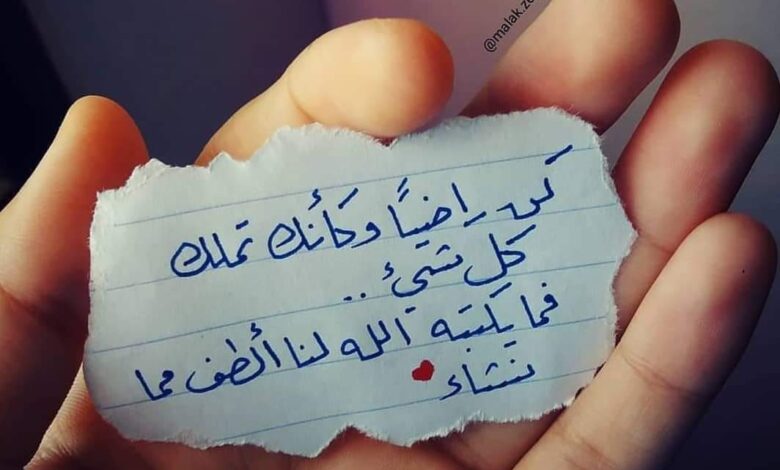 كن راضياً وكأنك تملك
كل شيئ ..
فما يكتبه الله لنا ألطف مما
نشاء